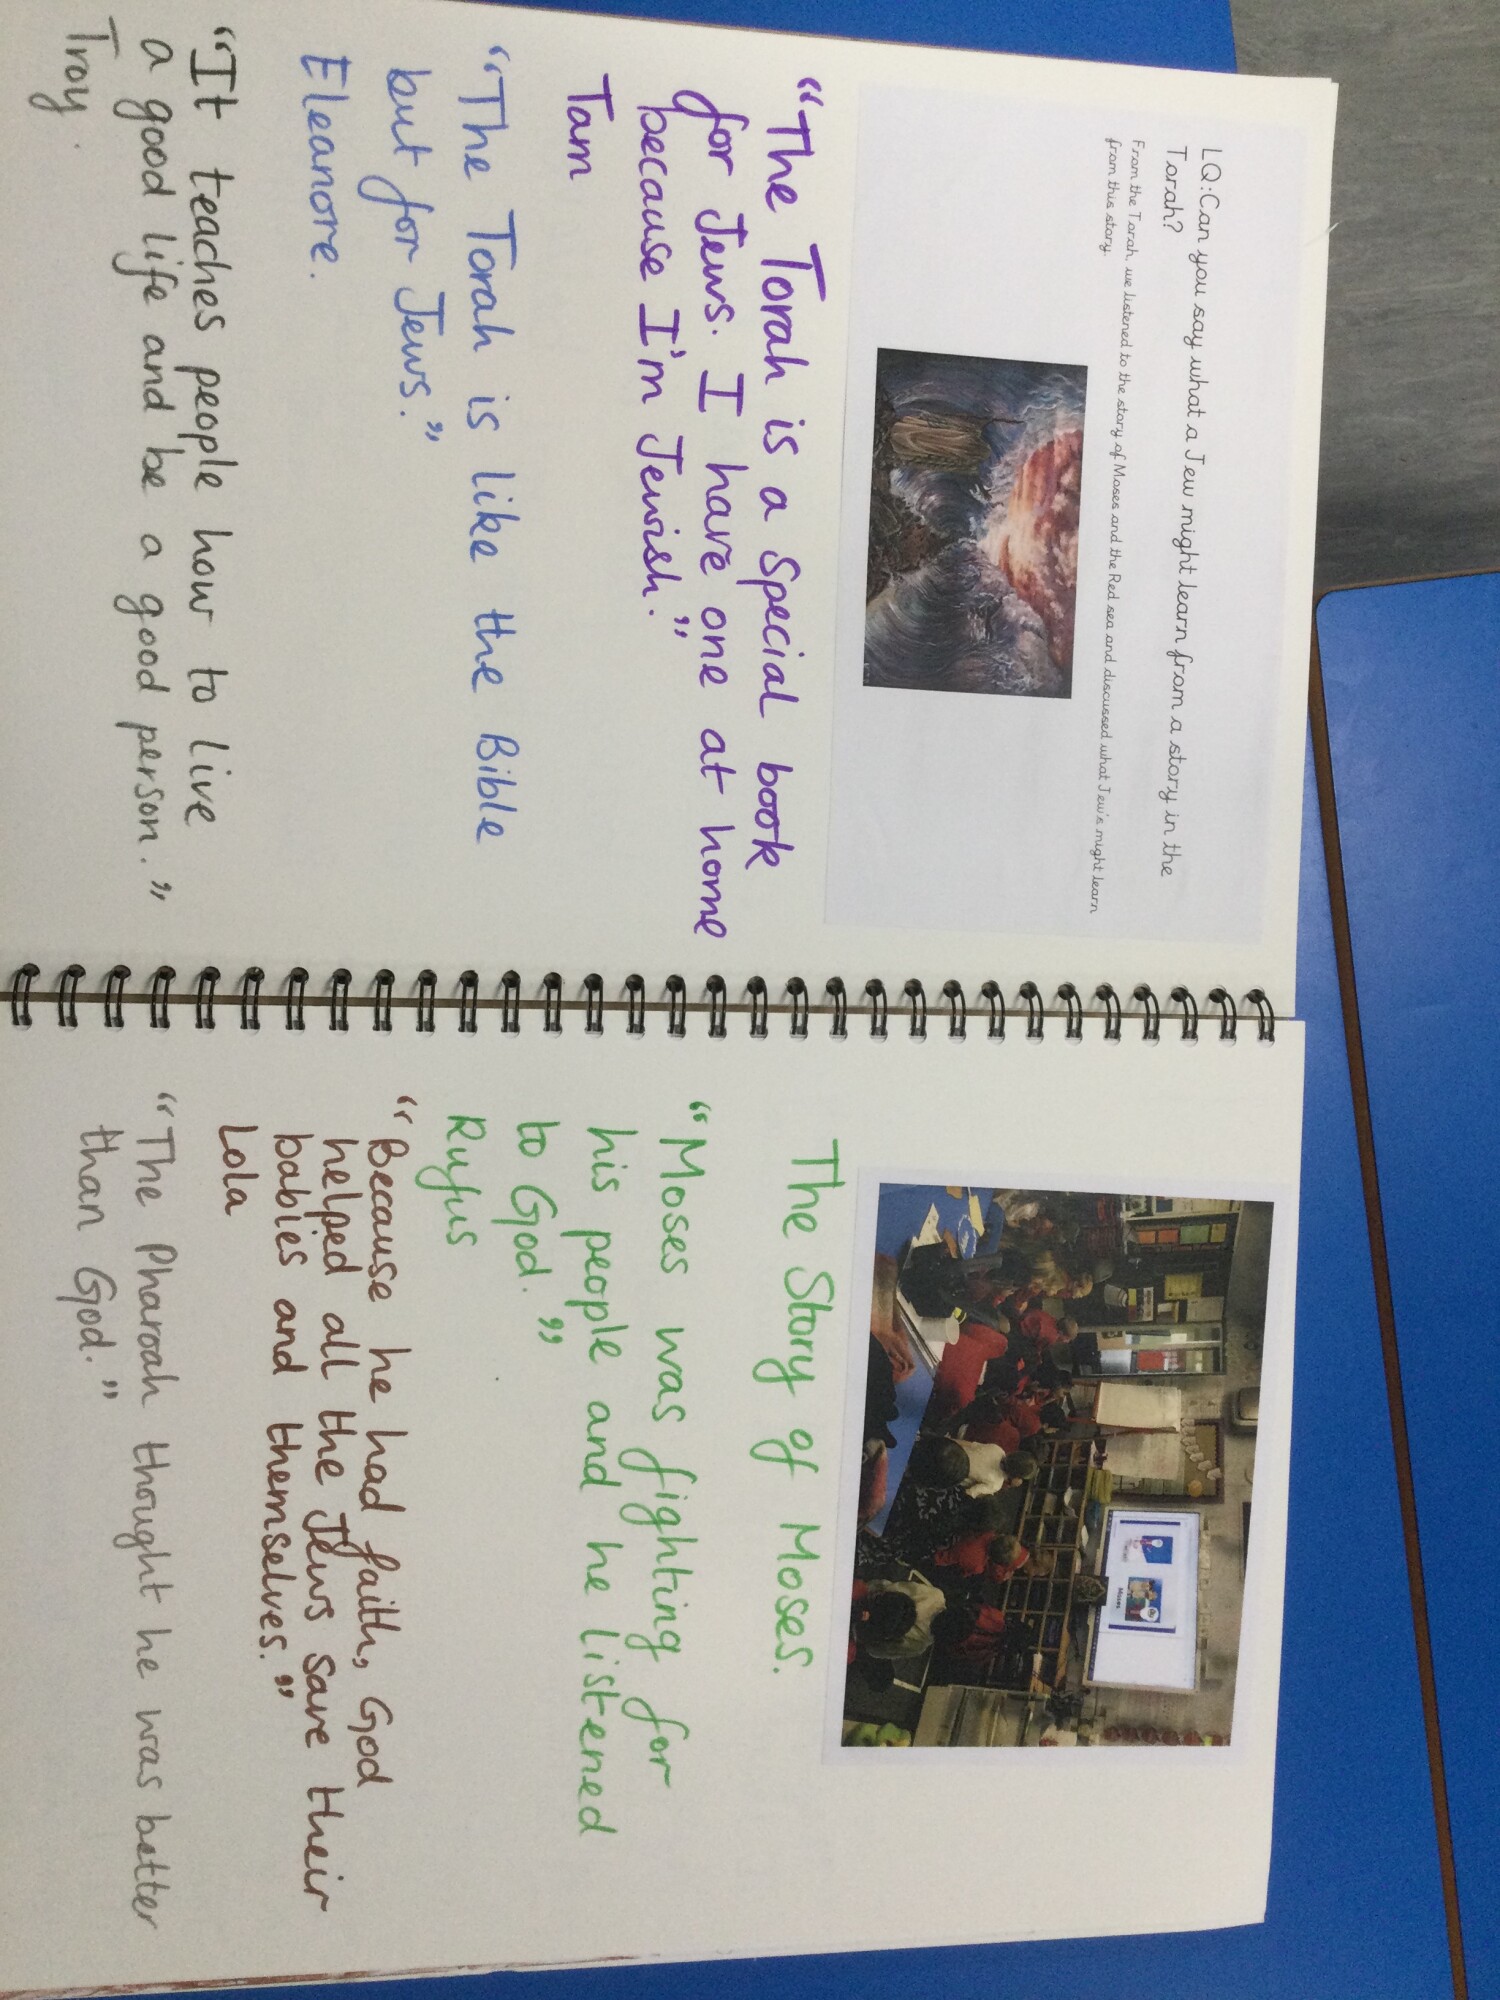 LQ:Can you say what a Jew might learn from a story in the
Torah?
From the Torah, we listened to the story of Moses and the Red sea and discussed what Jew's might learn
from this story.
"The Torah is a special book
for Jews. I have one at home
because I'm Jewish."
Tam
"The Torah is like the Bible
but for Jews."
Eleanore.
"It teaches people how to live
a good life and be a good person."
Troy.
Moses
The Story of Moses.
"Moses was fighting for
his people and he listened
to God."
Rufus
"Because he had faith, God
helped all the Jews save their
babies and themselves."
Lola
"The Pharoah thought he was better
than God."